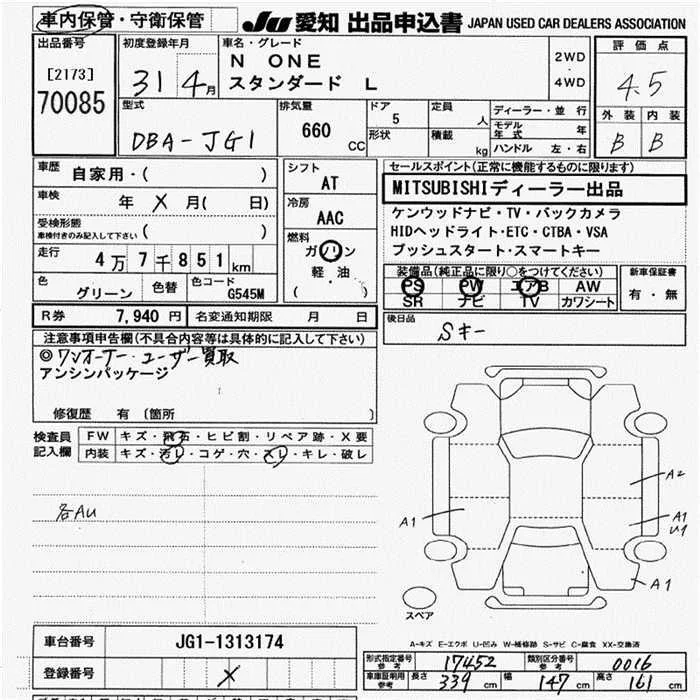 車内保管・守衛保管 JU 愛知 出品申込書 JAPAN USED CAR DEALERS ASSOCIATION
出品番号
[2173]
70085
初度登録年月
31 4月
車名・グレード
N ONE
スタンダード L
2WD
・
4WD
評価点
4.5
外装 内装
B B
型式
DBA-JG1
排気量
660 CC
ドア
5
形状
定員
人
積載
kg
ディーラー・並行
モデル年式 年
ハンドル 左・右
車歴
自家用・( )
車検
年 X 月( 日)
受検形態
車検付きのみ記入して下さい ( )
走行
4万7千851km
色
グリーン
色替
色コード
G545M
シフト
AT
冷房
AAC
燃料
ガソリン
軽・油
( )
セールスポイント(正常に機能するものに限ります)
MITSUBISHIディーラー出品
ケンウッドナビ・TV・バックカメラ
HIDヘッドライト・ETC・CTBA・VSA
プッシュスタート・スマートキー
装備品(純正品に限り○をつけてください)
PS PW エアB AW
SR ナビ TV カワシート
新車保証書
有・無
R券 7,940円 名変通知期限 月 日
後日品
Sキー
注意事項申告欄(不具合内容等は具体的に記入して下さい)
◎ワンオーナー・ユーザー買取
アンシンパッケージ
修復歴 有 〔箇所 〕
検査員
記入欄
FW キズ・飛石・ヒビ割・リペア跡・X要
内装 キズ・汚レ・コゲ・穴・スレ・キレ・破レ
各AU
A1
A2
A1
U1
A1
スペア
A-キズ E-エクボ U-凹み W-補修跡 S-サビ C-腐食 XX-交換済
車台番号 JG1-1313174
登録番号 X
形式指定番号
参考
17452
類別区分番号
参考
0016
車庫証明用
参考
長さ 339 cm 幅 147 cm 高さ 161 cm